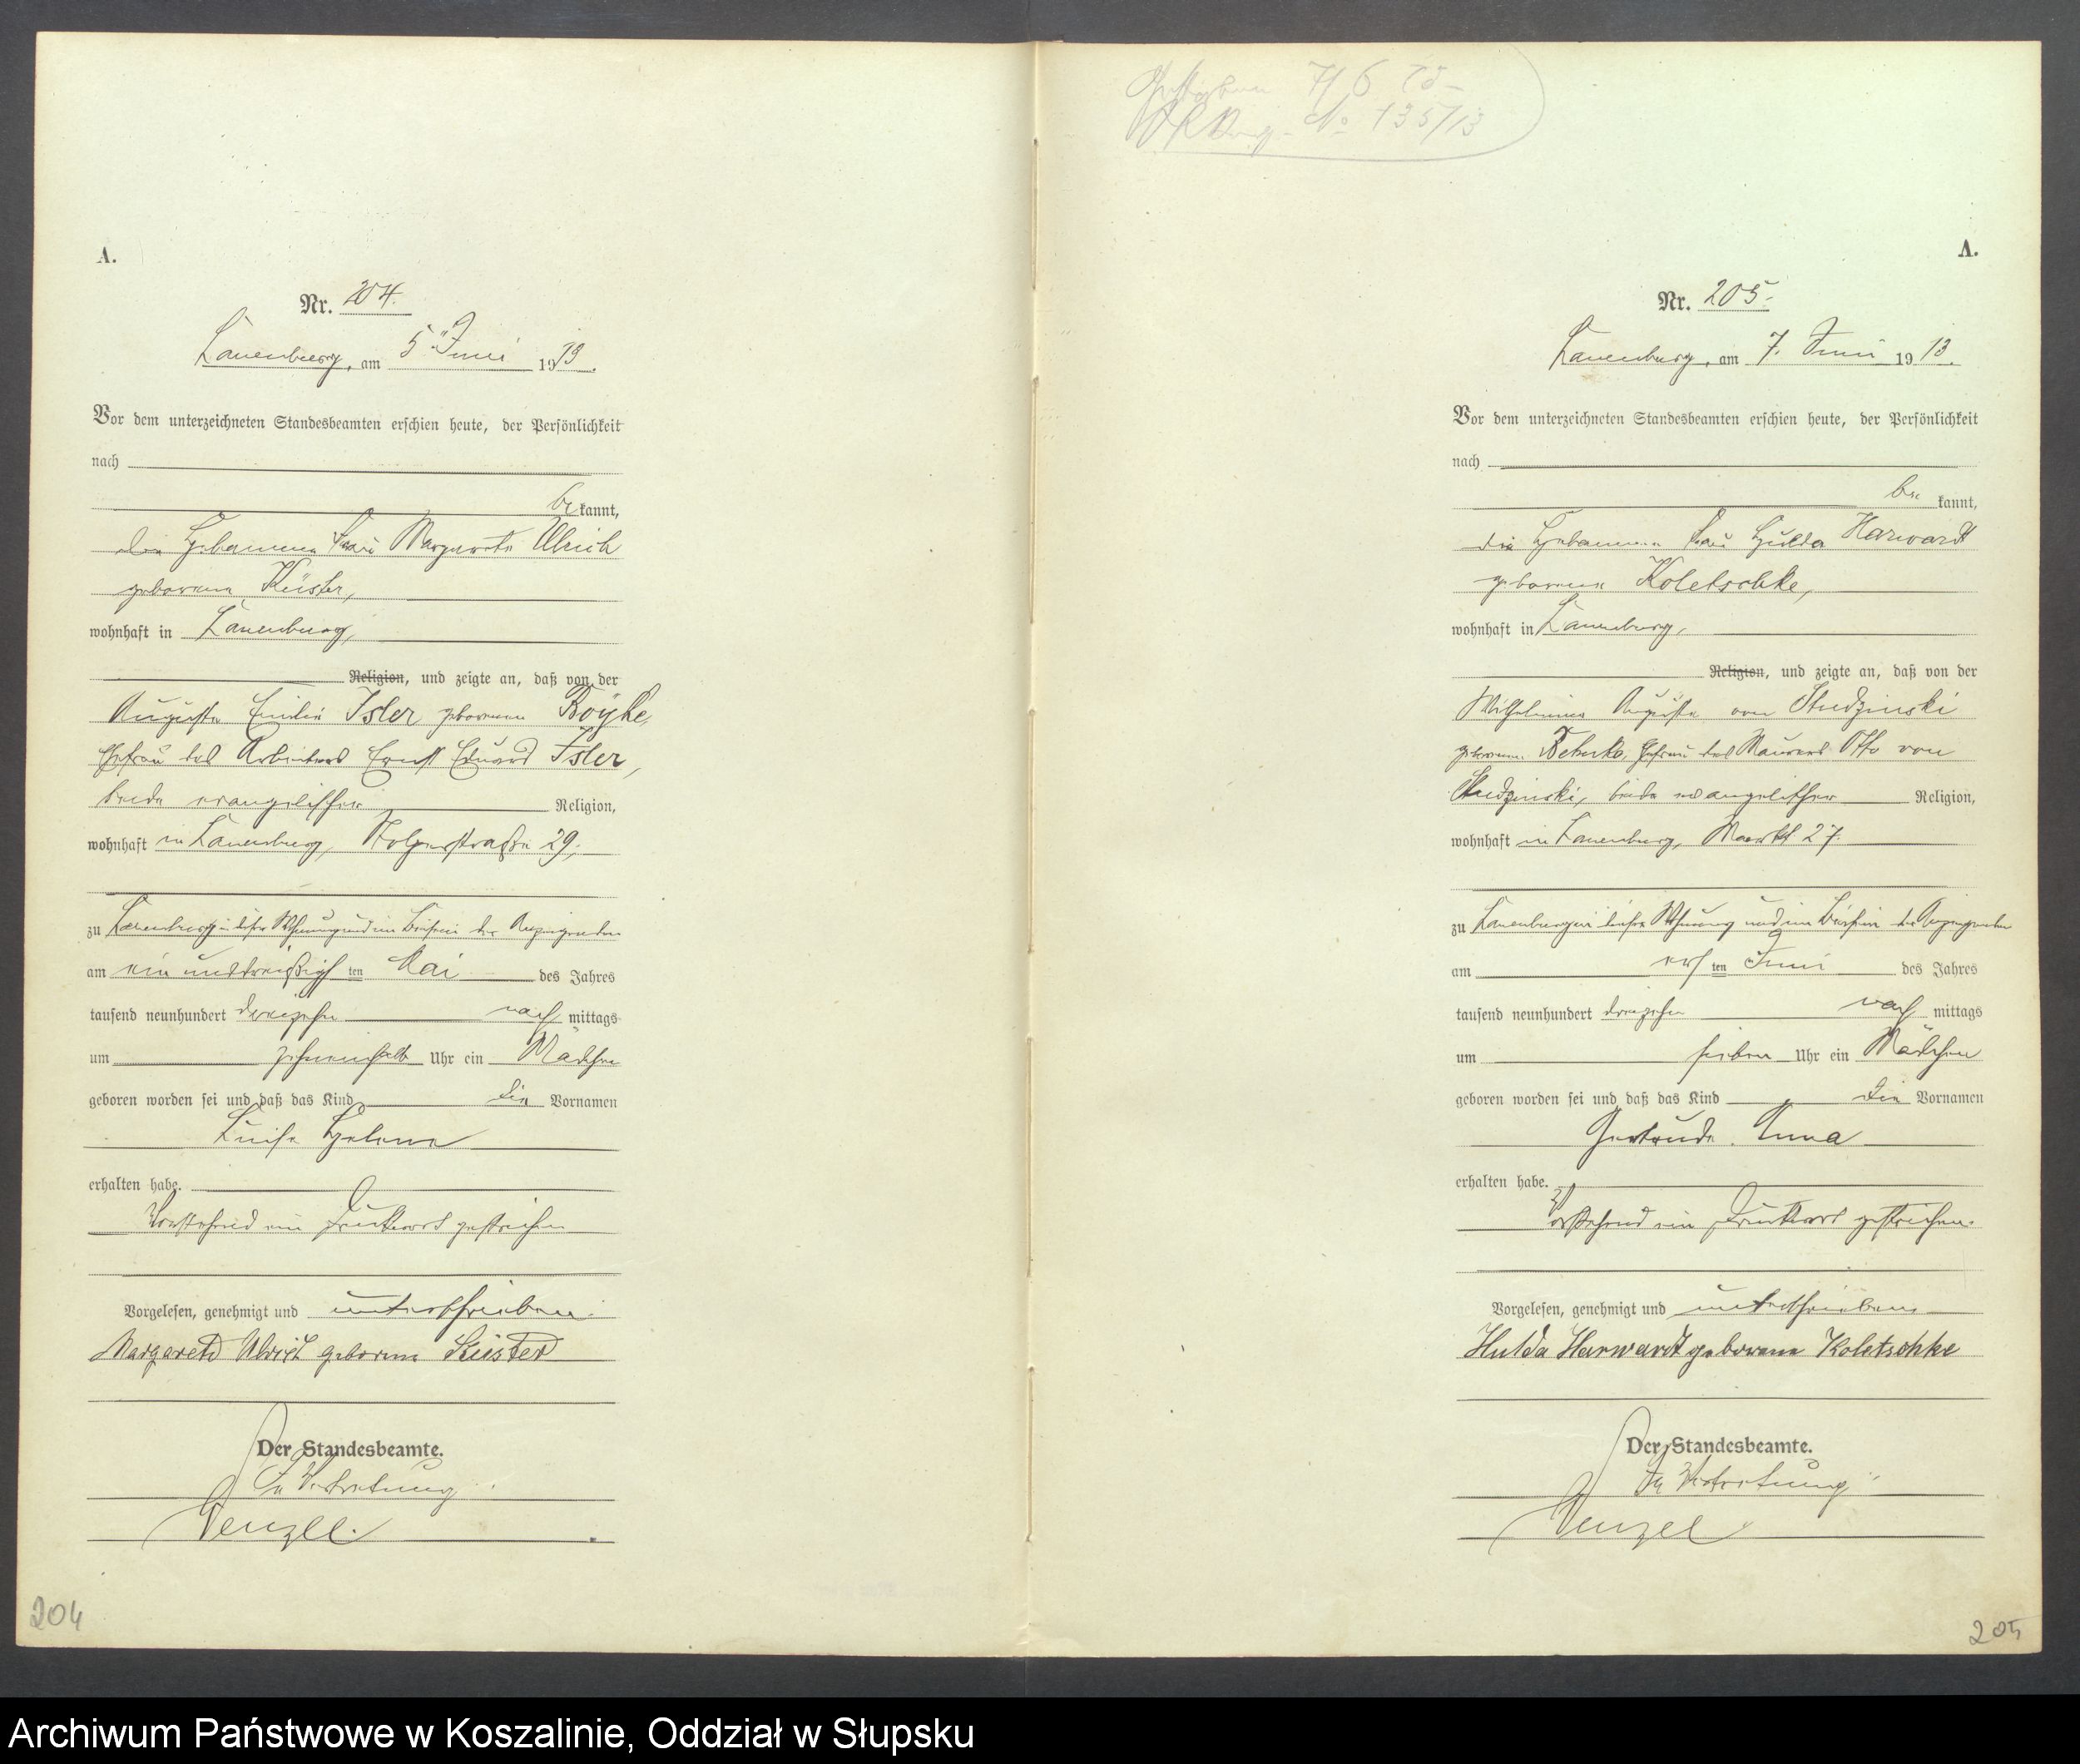 A.
Nr. 204.
Lauenburg, am 5. Juni 1913.
Vor dem unterzeichneten Standesbeamten erschien heute, der Persönlichkeit
nach
be kannt,
die Hebamme Frau Margarete Ulrich
geborene Küster,
wohnhaft in Lauenburg,
Religion, und zeigte an, daß von der
Auguste Emilie Isler geborene Böyke,
Ehefrau des Arbeiters Ernst Eduard Isler,
beide evangelischer Religion,
wohnhaft in Lauenburg, 29,
zu Lauenburg in dieser Wohnung und im Beisein der Anzeigenden
am ein unddreißigsten Mai des Jahres
tausend neunhundert dreizehn nach mittags
um zehneinhalb Uhr ein Mädchen
geboren worden sei und daß das Kind die Vornamen
Luise Helene
erhalten habe.
Vorstehend ein Druckwort gestrichen
Vorgelesen, genehmigt und unterschrieben.
Margarete Ulrich geborene Küster
Der Standesbeamte.
In Vertretung.
Wenzel.
204
7/6
No 135/13
A.
Nr. 205.
Lauenburg, am 7. Juni 1913.
Vor dem unterzeichneten Standesbeamten erschien heute, der Persönlichkeit
nach
be kannt,
die Hebamme Frau Hulda Harwardt
geborene Koletschke,
wohnhaft in Lauenburg,
Religion, und zeigte an, daß von der
Wilhelmine Auguste von Studzinski
geborene Behnke, Ehefrau des Maurers Otto von
Studzinski, beide evangelischer Religion,
wohnhaft in Lauenburg, Markt 27.
zu Lauenburg in dieser Wohnung und im Beisein der Anzeigenden
am ersten Juni des Jahres
tausend neunhundert dreizehn nach mittags
um sieben Uhr ein Mädchen
geboren worden sei und daß das Kind die Vornamen
Gertrude Anna
erhalten habe.
Vorstehend ein Druckwort gestrichen.
Vorgelesen, genehmigt und unterschrieben
Hulda Harwardt geborene Koletschke
Der Standesbeamte.
In Vertretung
Wenzel
205
Archiwum Państwowe w Koszalinie, Oddział w Słupsku